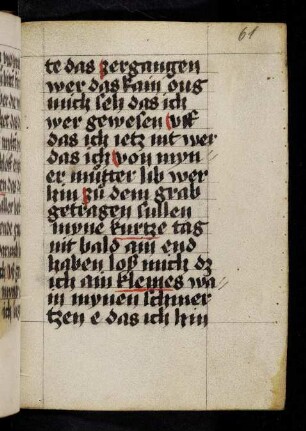 61
te das zergangen
wer das kain oug
mich seh das ich
wer gewesen vff
das ich ietz nit wer
das ich von myn
er mutter lib wer
hin zů dem grab
getragen sullen
myne kurtze tag
nit bald ain end
haben loß mich dz
ich ain kleines wa
in mynen schmer
tzen e das ich hin